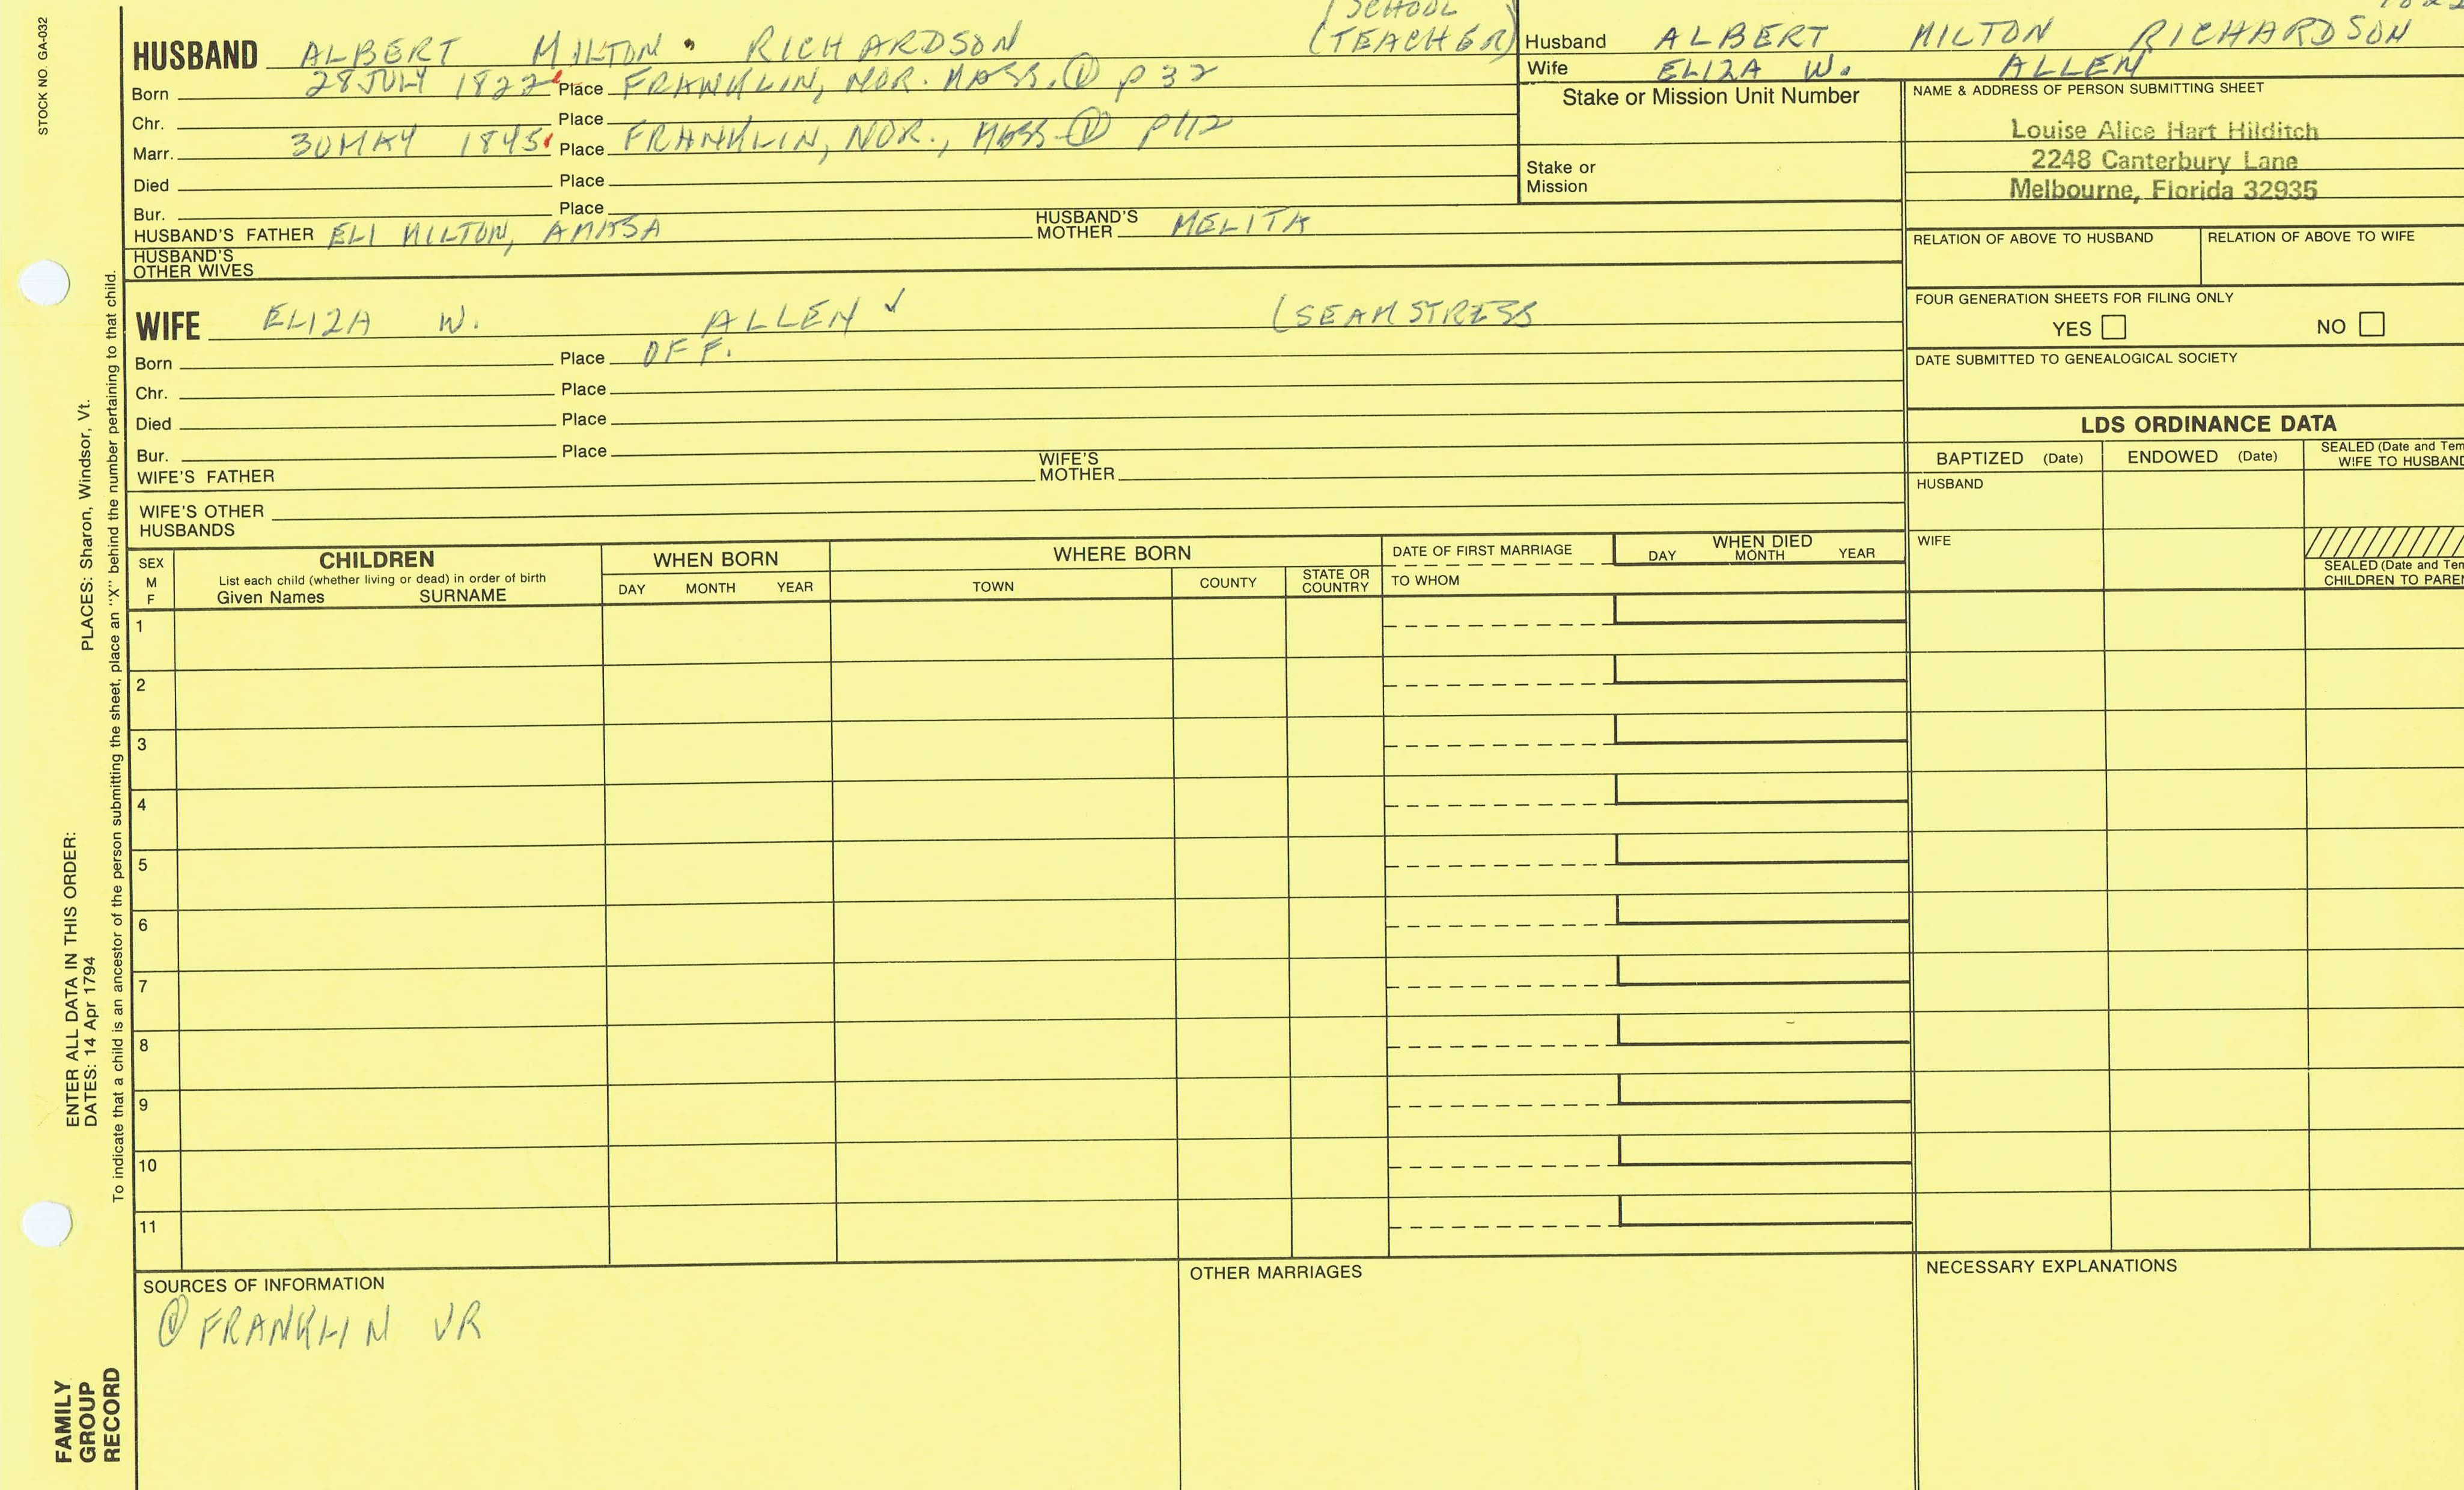 STOCK NO. GA-032
(SCHOOL
TEACHER)
HUSBAND ALBERT MILTON RICHARDSON
Born 28 JULY 1822 Place FRANKLIN, NOR. MASS. ① p 32
Chr. Place
Marr. 30 MAY 1845 Place FRANKLIN, NOR., MASS ① p112
Died Place
Bur. Place
HUSBAND'S FATHER ELI MILTON, AMASA HUSBAND'S MOTHER MELITA
HUSBAND'S OTHER WIVES
WIFE ELIZA W. ALLEN ✓ (SEAMSTRESS
Born Place OF F.
Chr. Place
Died Place
Bur. Place
WIFE'S FATHER WIFE'S MOTHER
WIFE'S OTHER HUSBANDS
Husband ALBERT MILTON RICHARDSON
Wife ELIZA W. ALLEN
Stake or Mission Unit Number
Stake or Mission
NAME & ADDRESS OF PERSON SUBMITTING SHEET
Louise Alice Hart Hilditch
2248 Canterbury Lane
Melbourne, Florida 32935
RELATION OF ABOVE TO HUSBAND RELATION OF ABOVE TO WIFE
FOUR GENERATION SHEETS FOR FILING ONLY
YES NO
DATE SUBMITTED TO GENEALOGICAL SOCIETY
LDS ORDINANCE DATA
BAPTIZED (Date) ENDOWED (Date) SEALED (Date and Tem
WIFE TO HUSBAND
HUSBAND
WIFE
SEALED (Date and Tem
CHILDREN TO PARE
SEX
M
F
CHILDREN
List each child (whether living or dead) in order of birth
Given Names SURNAME
WHEN BORN
DAY MONTH YEAR
WHERE BORN
TOWN COUNTY STATE OR COUNTRY
DATE OF FIRST MARRIAGE
TO WHOM
WHEN DIED
DAY MONTH YEAR
1
2
3
4
5
6
7
8
9
10
11
SOURCES OF INFORMATION
① FRANKLIN VR
OTHER MARRIAGES
NECESSARY EXPLANATIONS
PLACES: Sharon, Windsor, Vt.
ENTER ALL DATA IN THIS ORDER:
DATES: 14 Apr 1794
To indicate that a child is an ancestor of the person submitting the sheet, place an "X" behind the number pertaining to that child.
FAMILY
GROUP
RECORD